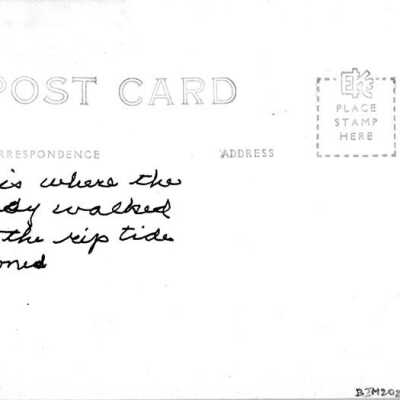 POST CARD
EKC
PLACE
STAMP
HERE
RRESPONDENCE
ADDRESS
is where the
dy walked
the rip tide
oned
BIM202